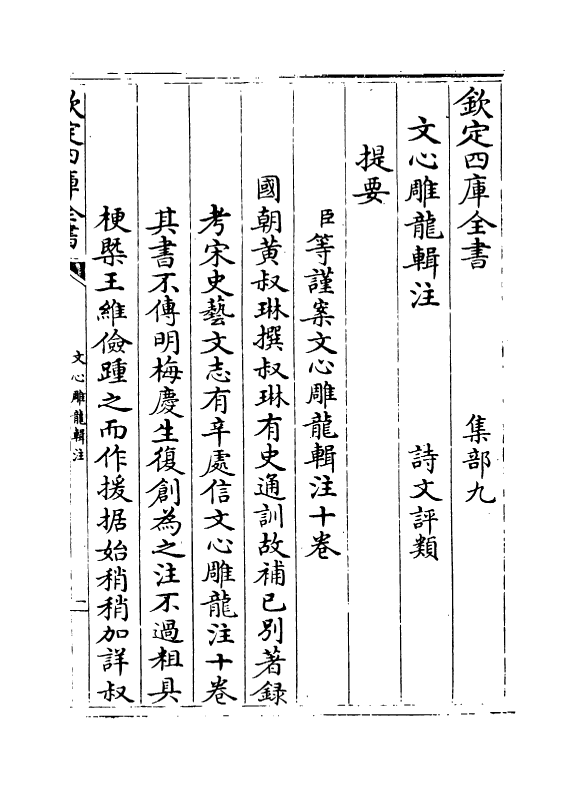 欽定四庫全書 集部九
文心雕龍輯注 詩文評類
提要
臣等謹案文心雕龍輯注十卷
國朝黃叔琳撰叔琳有史通訓故補已別著録
考宋史藝文志有辛處信文心雕龍注十卷
其書不傳明梅慶生復創為之注不過粗具
梗槩王維儉踵之而作援据始稍稍加詳叔
欽定四庫全書
文心雕龍輯注